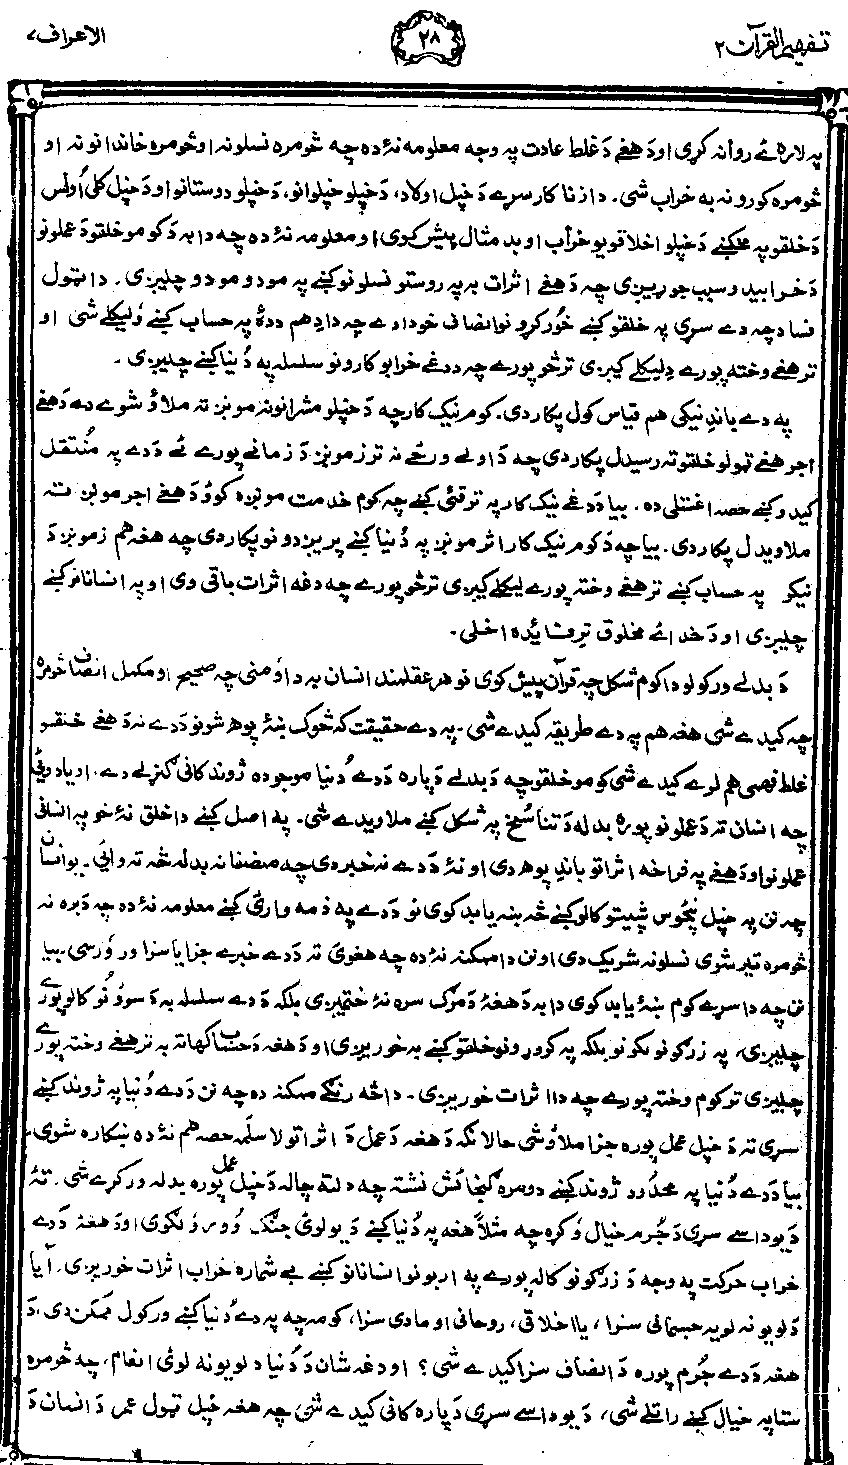 تفهیم القرآن ۲
۲۸
الاعراف ۷
په لاره ئے روانه کړی او دَ هغے دَ غلط عادت په وجه معلومه نهٔ ده چه څومره نسلونه او څومره خاندانونه او
څومره کورونه به خراب شی. دا زنا کار سړے دَ خپل اولاد، دَ خپلو خپلوانو، دَ خپلو دوستانو او دَ خپل کلی اُولس
دَ خلقو په مخکښے دَ خپلو اخلاقو یو خراب او بد مثال پیش کوی او معلومه نهٔ ده چه دا به دَ کومو خلقو دَ عملونو
دَ خرابیدو سبب جوړیږی چه دَ هغے اثرات به په روستو نسلونو کښے په مودو مودو چلیږی. دا ټول
فساد چه دے سړی په خلقو کښے خور کړو نو انصاف خو دا دے چه دا دِ هم ددهٔ په حساب کښے وٗلیکلے شی او
تر هغے وخته پورے دِ لیکلے کیږی ترڅو پورے چه ددغے خرابو کارونو سلسله په دُنیا کښے چلیږی.
په دے باندِ نیکی هم قیاس کول پکار دی. کوم نیک کار چه دَ خپلو مشرانو نه مونږ ته ملاؤ شوے دے دَ هغے
اجر هغے ټولو خلقو ته رسیدل پکار دی چه دَ اولے ورځے نه تر زمونږ دَ زمانے پورے ئے دَ دے په مُنتقل
کیدو کښے حصه اغستلی ده. بیا دَ دغے نیک کار په ترقئ کښے چه کوم خدمت مونږه کوؤ دَ هغے اجر مونږ ته
ملاویدل پکار دی. بیا چه دَ کوم نیک کار اثر مونږ په دُنیا کښے پریږدو نو پکار دی چه هغه هم زمونږ دَ
نیکو په حساب کښے تر هغے وخته پورے لیکلے کیږی ترڅو پورے چه دغه اثرات باقی وی او په انسانانو کښے
چلیږی او دَ خدائے مخلوق ترے فائده اخلی.
دَ بدلے ورکولو دا کوم شکل چه قرآن پیش کوی نو هر عقلمند انسان به دا وٗمنی چه صحیح او مکمل انصاف څومره
چه کیدے شی هغه هم په دے طریقه کیدے شی. په دے حقیقت که څوک ښهٔ پوهه شو نو دَ دے نه دَ هغے خلقو
غلط فهمی هم لرے کیدے شی کومو خلقو چه دَ بدلے دَپاره دَ دے دُنیا موجوده ژوند کافی ګنړلے دے. او
چه انسان ته دَ عملونو پوره بدله دَ تناسُخ په شکل کښے ملاویدے شی. په اصل کښے دا خلق نهٔ خو په انسانی
عملونو او دَ هغے په فراخه اثراتو باندِ پوهه دی او نهٔ دَ دے نه خبر دی چه منصفانه بدله څه ته وائی. یو انسان
چه نن په خپل پنځوس شپیتو کالو کښے څه ښه یا بد کوی نو دَ دے په ذمه وارئ کښے معلومه نهٔ ده چه دَ بره نه
څومره تیر شوی نسلونه شریک دی او نن دا ممکنه نهٔ ده چه هغوی ته دَ دے خبرے جزا یا سزا ورٗ ورسی. بیا
نن چه دا سړے کوم ښهٔ یا بد کوی دا به دَ هغهٔ دَ مرګ سره نهٔ ختمیږی بلکه دَ دے سلسله به دَ سوونو کالو پورے
چلیږی، په زرګونو لکونو بلکه په کروړونو خلقو کښے به خوریږی او دَ هغه دَ حساب کهاته به تر هغے وخته پورے
چلیږی تر کوم وخته پورے چه دا اثرات خوریږی. دا څه رنګے ممکنه ده چه نن دَ دے دُنیا په ژوند کښے
سړی ته دَ خپل عمل پوره جزا ملاؤ شی حالانکه دَ هغه دَ عمل دَ اثراتو لا سلمه حصه هم نهٔ ده ښکاره شوی.
بیا دَ دے دُنیا په محدود ژوند کښے دومره ګنجائش نشته چه دلته چاله دَ خپل عمل پوره بدله ورکړے شی. تهٔ
دَ یو داسے سړی دَ جُرم خیال وٗکړه چه مثلاً هغه په دُنیا کښے دَ یو لوئ جنګ اوور وٗلګوی او دَ هغهٔ دَ دے
خراب حرکت په وجه دَ زرګونو کاله پورے په اربونو انسانانو کښے بے شماره خراب اثرات خوریږی. آیا
دَ لویو نه لویه جسمانی سزا، یا اخلاقی، روحانی او مادی سزا، کومه چه په دے دُنیا کښے ورکول ممکن دی، دَ
هغه دَ دے جُرم پوره دَ انصاف سزا کیدے شی؟ او دغه شان دَ دُنیا دَ لویو نه لوئ انعام، چه څومره
ستا په خیال کښے راتلے شی، دَ یو داسے سړی دَ پاره کافی کیدے شی چه هغه خپل ټول عمر دَ انسان دَ